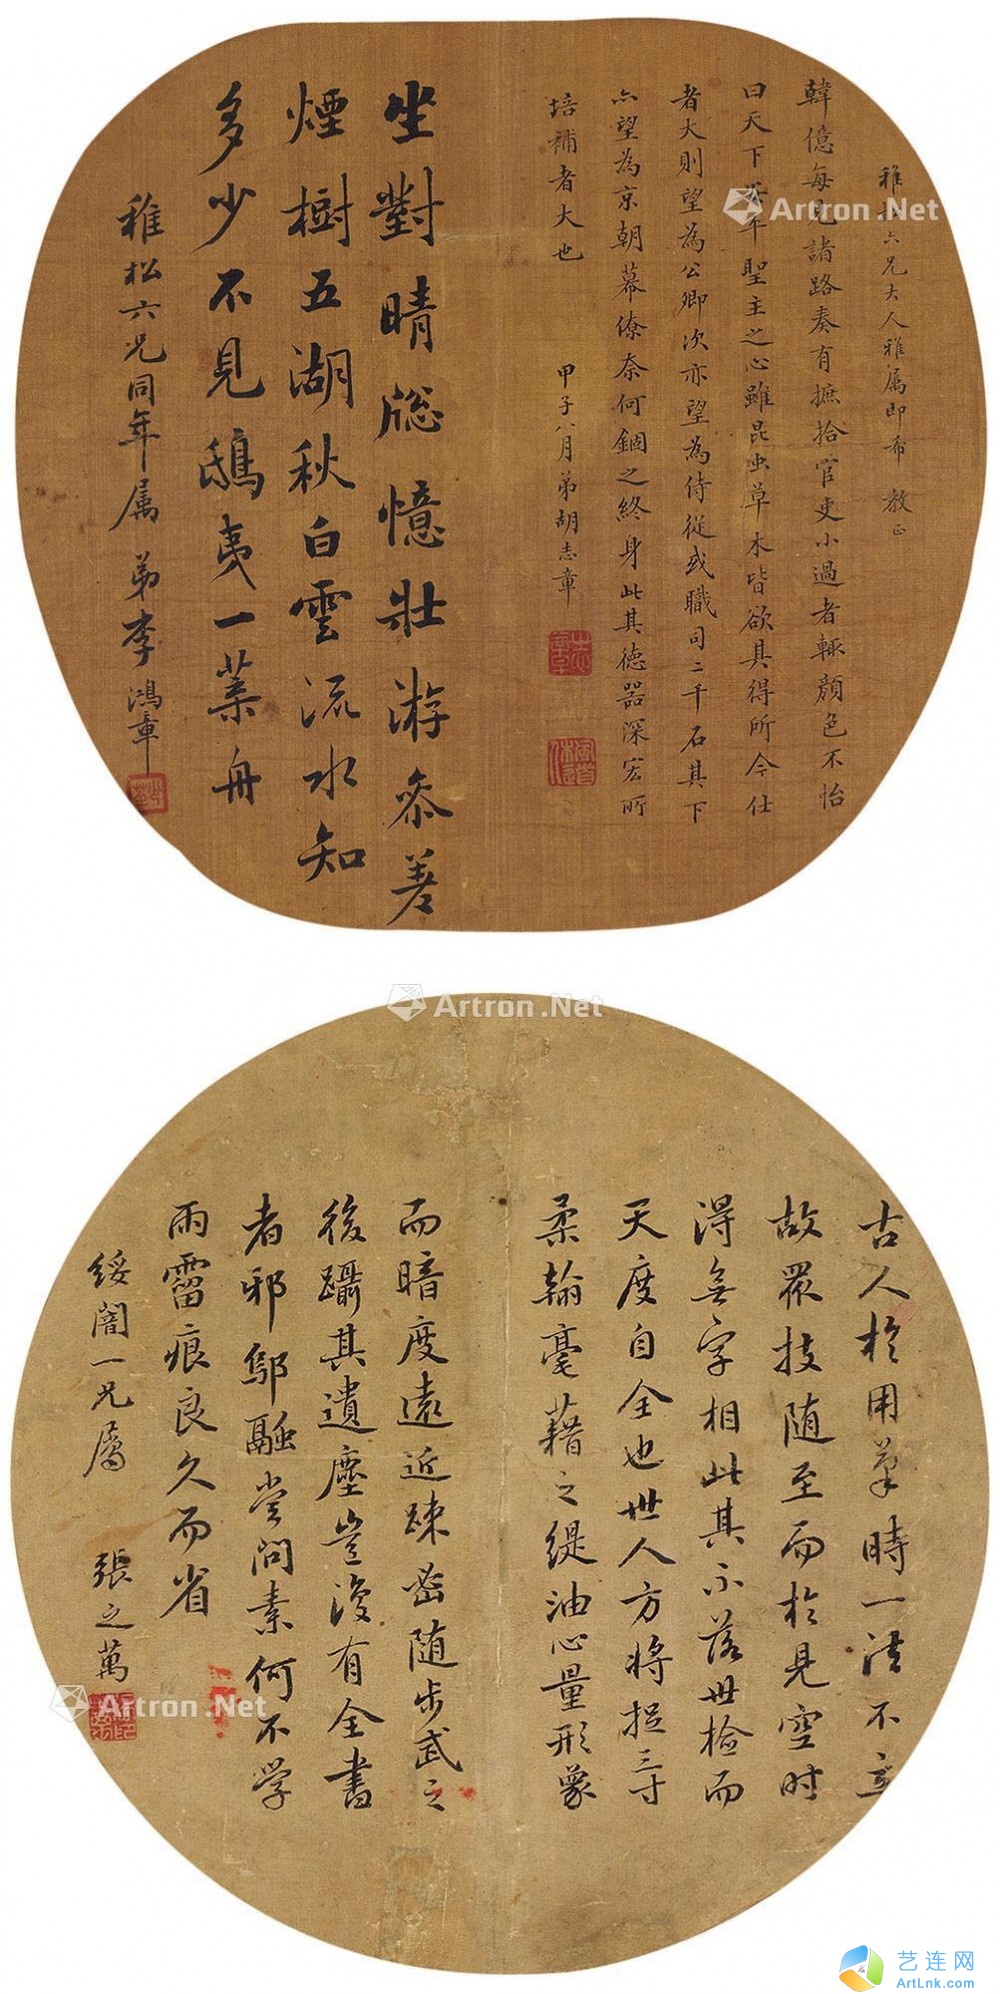 稚松六兄大人雅属即希 教正
韓億每見諸路奏有摭拾官吏小過者輒顏色不怡
曰天下太平聖主之心雖昆虫草木皆欲其得所今仕
者大則望為公卿次亦望為侍從或職司二千石其下
亦望為京朝幕僚奈何錮之終身此其德器深宏所
培補者大也 甲子八月弟胡志章
坐對晴牕憶壯游參差
煙樹五湖秋白雲流水知
多少不見鴟夷一葉舟
稚松六兄同年属 弟李鴻章
Artron.Net
Artron.Net
古人於用筆時一法不立
故眾技随至而於見空時
得無字相此其不落世檢而
天度自全也世人方將捉三寸
柔翰毫藉之緹油心量形象
而暗度遠近踈密随步武之
後躡其遺塵豈復有全書
者邪鄔融嘗問素何不學
雨霤痕良久而省
綏闇一兄屬 張之萬
Artron.Net
艺连网
ArtLnk.com